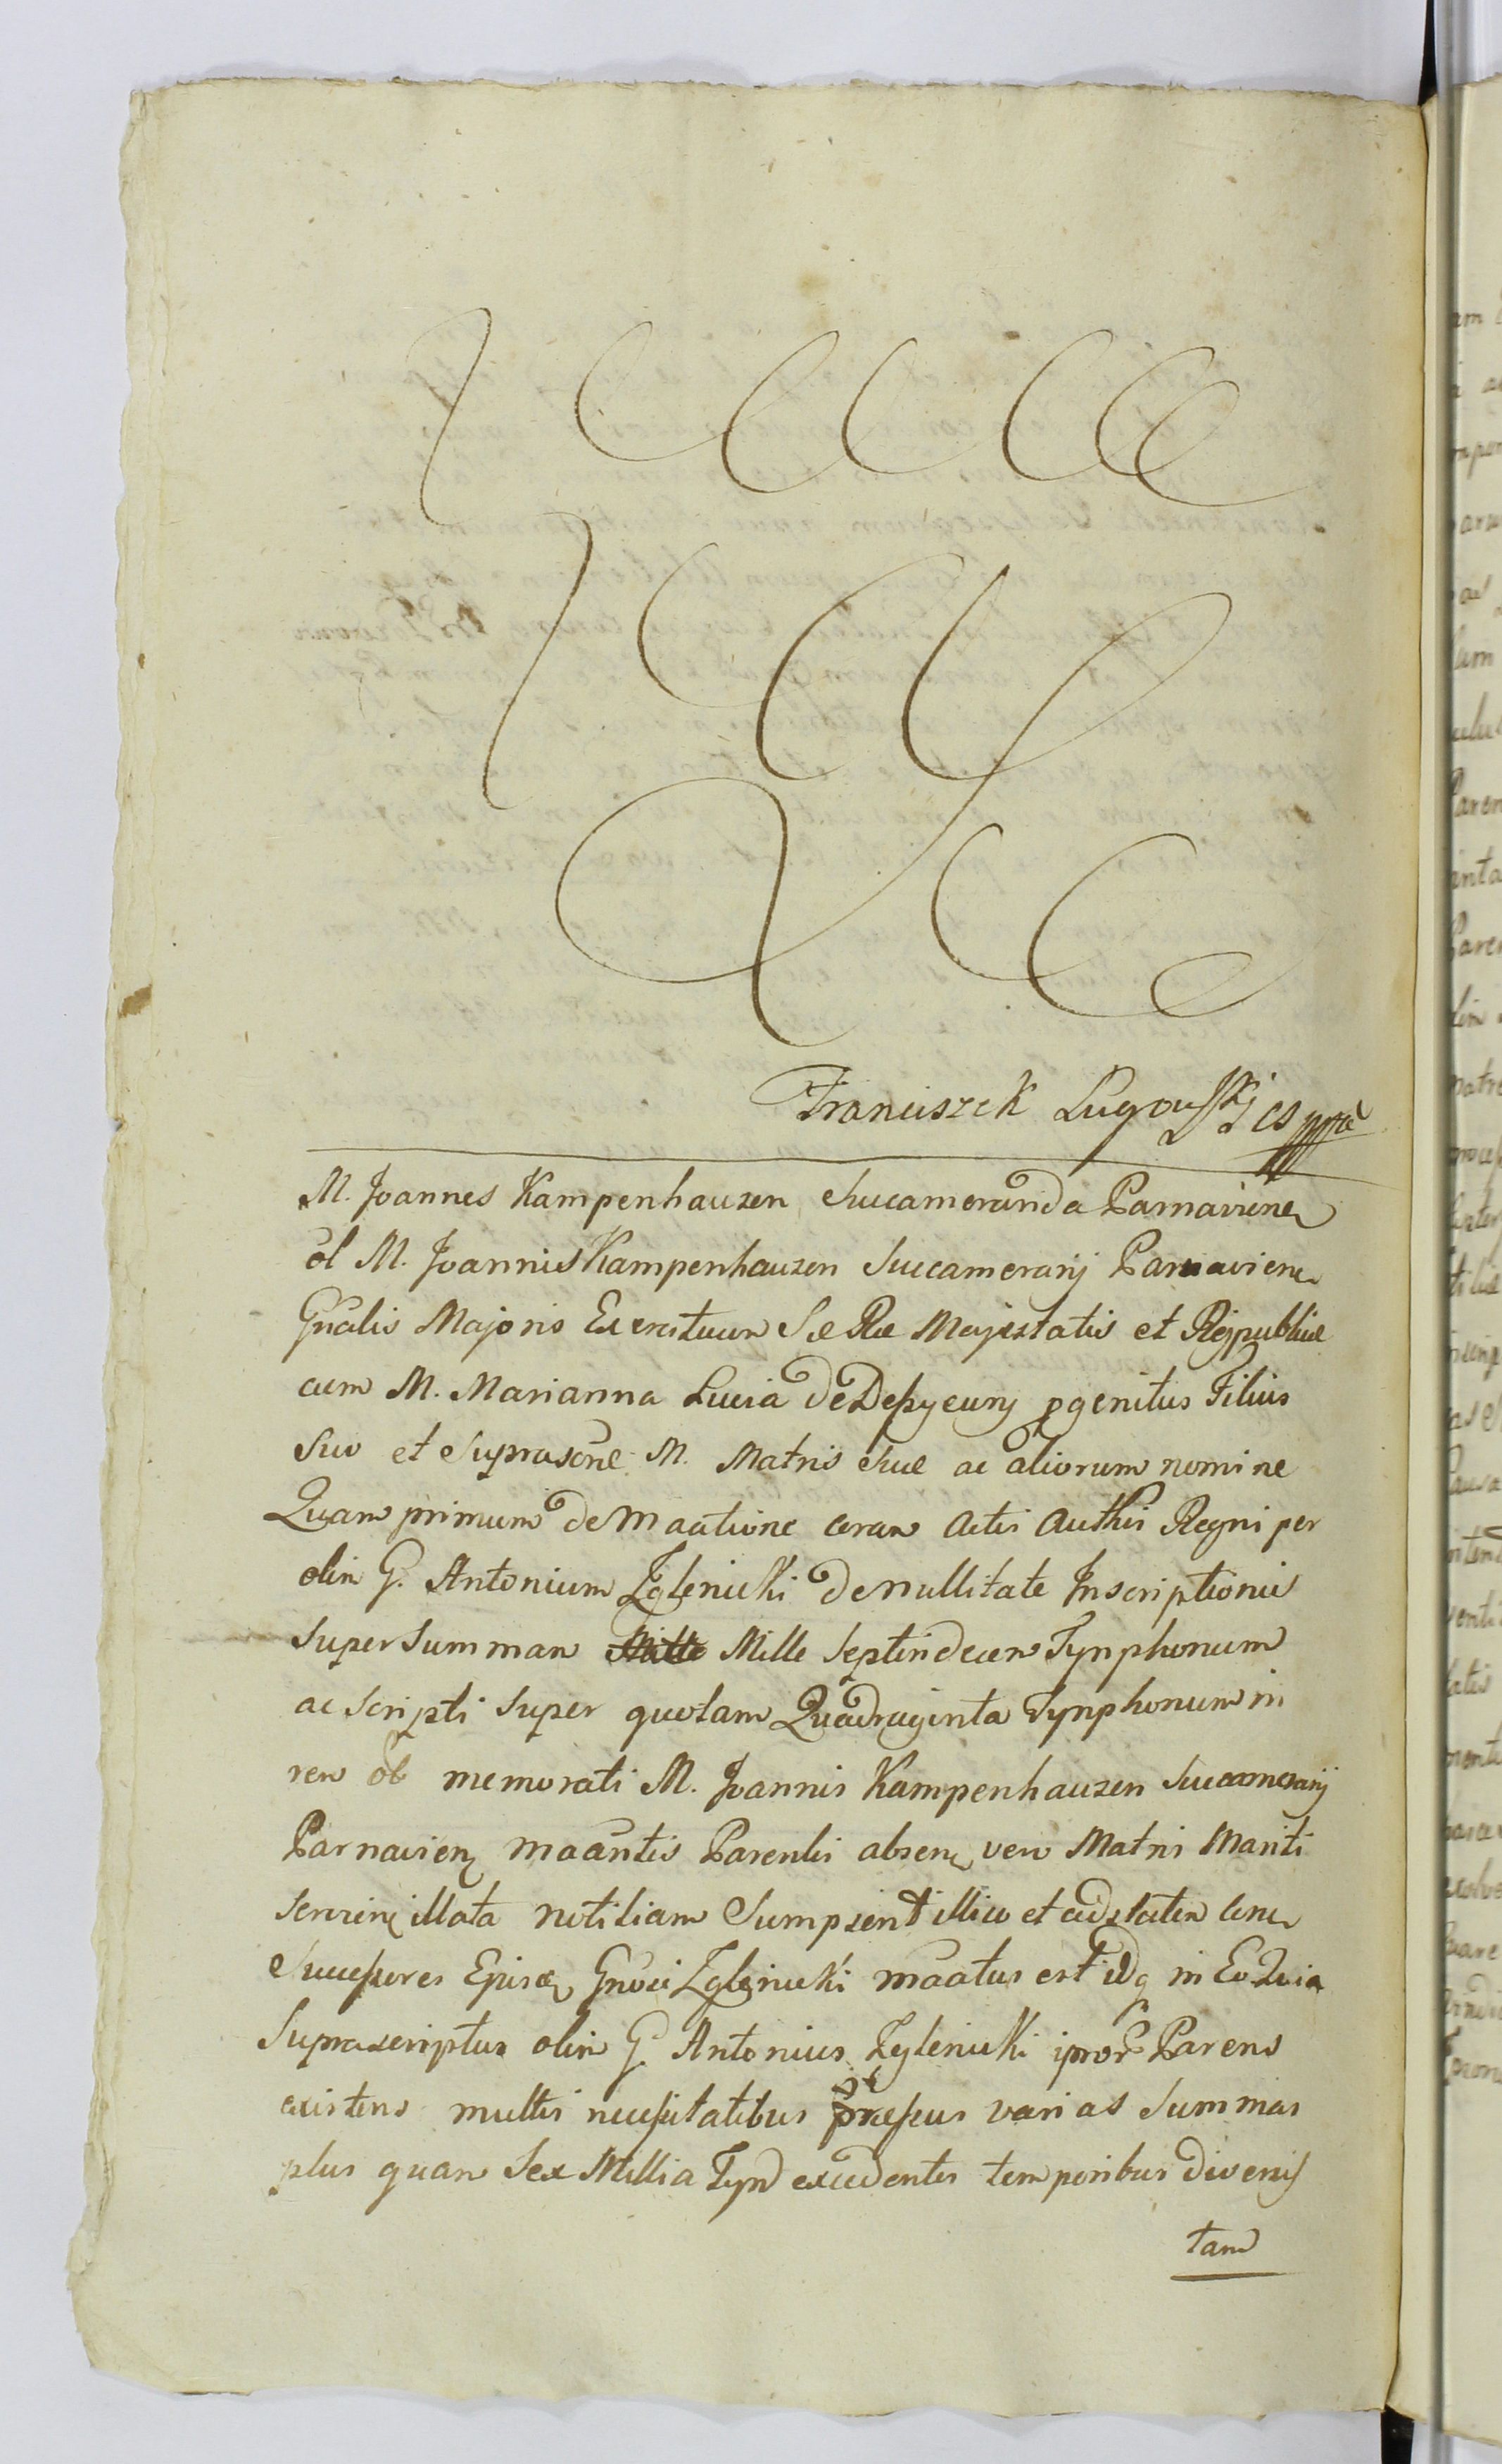 Franciszek Lugowski CS mpa
M. Joannes Kampenhauzen Succamerarida Parnavien
ol M. Joannis Kampenhauzen Succamerarij Parnavien
Gnalis Majoris Exercituum S Re Majestatis et Rejpublicæ
cum M. Marianna Lucia de Depyeurij pgenitus Filius
Suo et Suprascne M. Matris Suæ ac aliorum nomine
Quam primum de Maatione coram Actis Authis Regni per
olim G. Antonium Zglenicki de nullitate Inscriptionis
Super Summam Mille Mille Septindecem Tynphonum
ac Scripti Super quotam Quadraginta Tynphonum in
rem ol memorati M. Joannis Kampenhauzen Succamerarij
Parnavien maantis Parentis absen vero Matris Mariti
Servien illata notitiam Sumpsent illico et ad statem
Successores Gnosi Zglenicki maatus est idq in Eo Quia
Suprascriptus olim G. Antonius Zglenicki ipror Parens
existens multis necessitatibus præssus varias Summas
plus quam Sex Millia Tyn excedentes temporibus diversis
tam